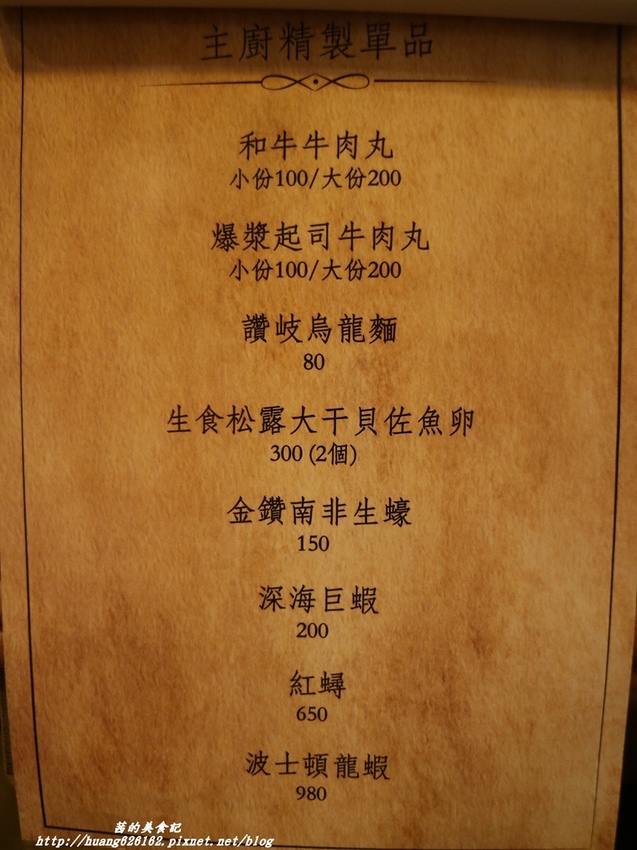 主廚精製單品
和牛牛肉丸
小份100/大份200
爆漿起司牛肉丸
小份100/大份200
讚岐烏龍麵
80
生食松露大干貝佐魚卵
300 (2個)
金鑽南非生蠔
150
深海巨蝦
200
紅蟳
650
波士頓龍蝦
980
茜的美食記
http://huang626162.pixnet.net/blog